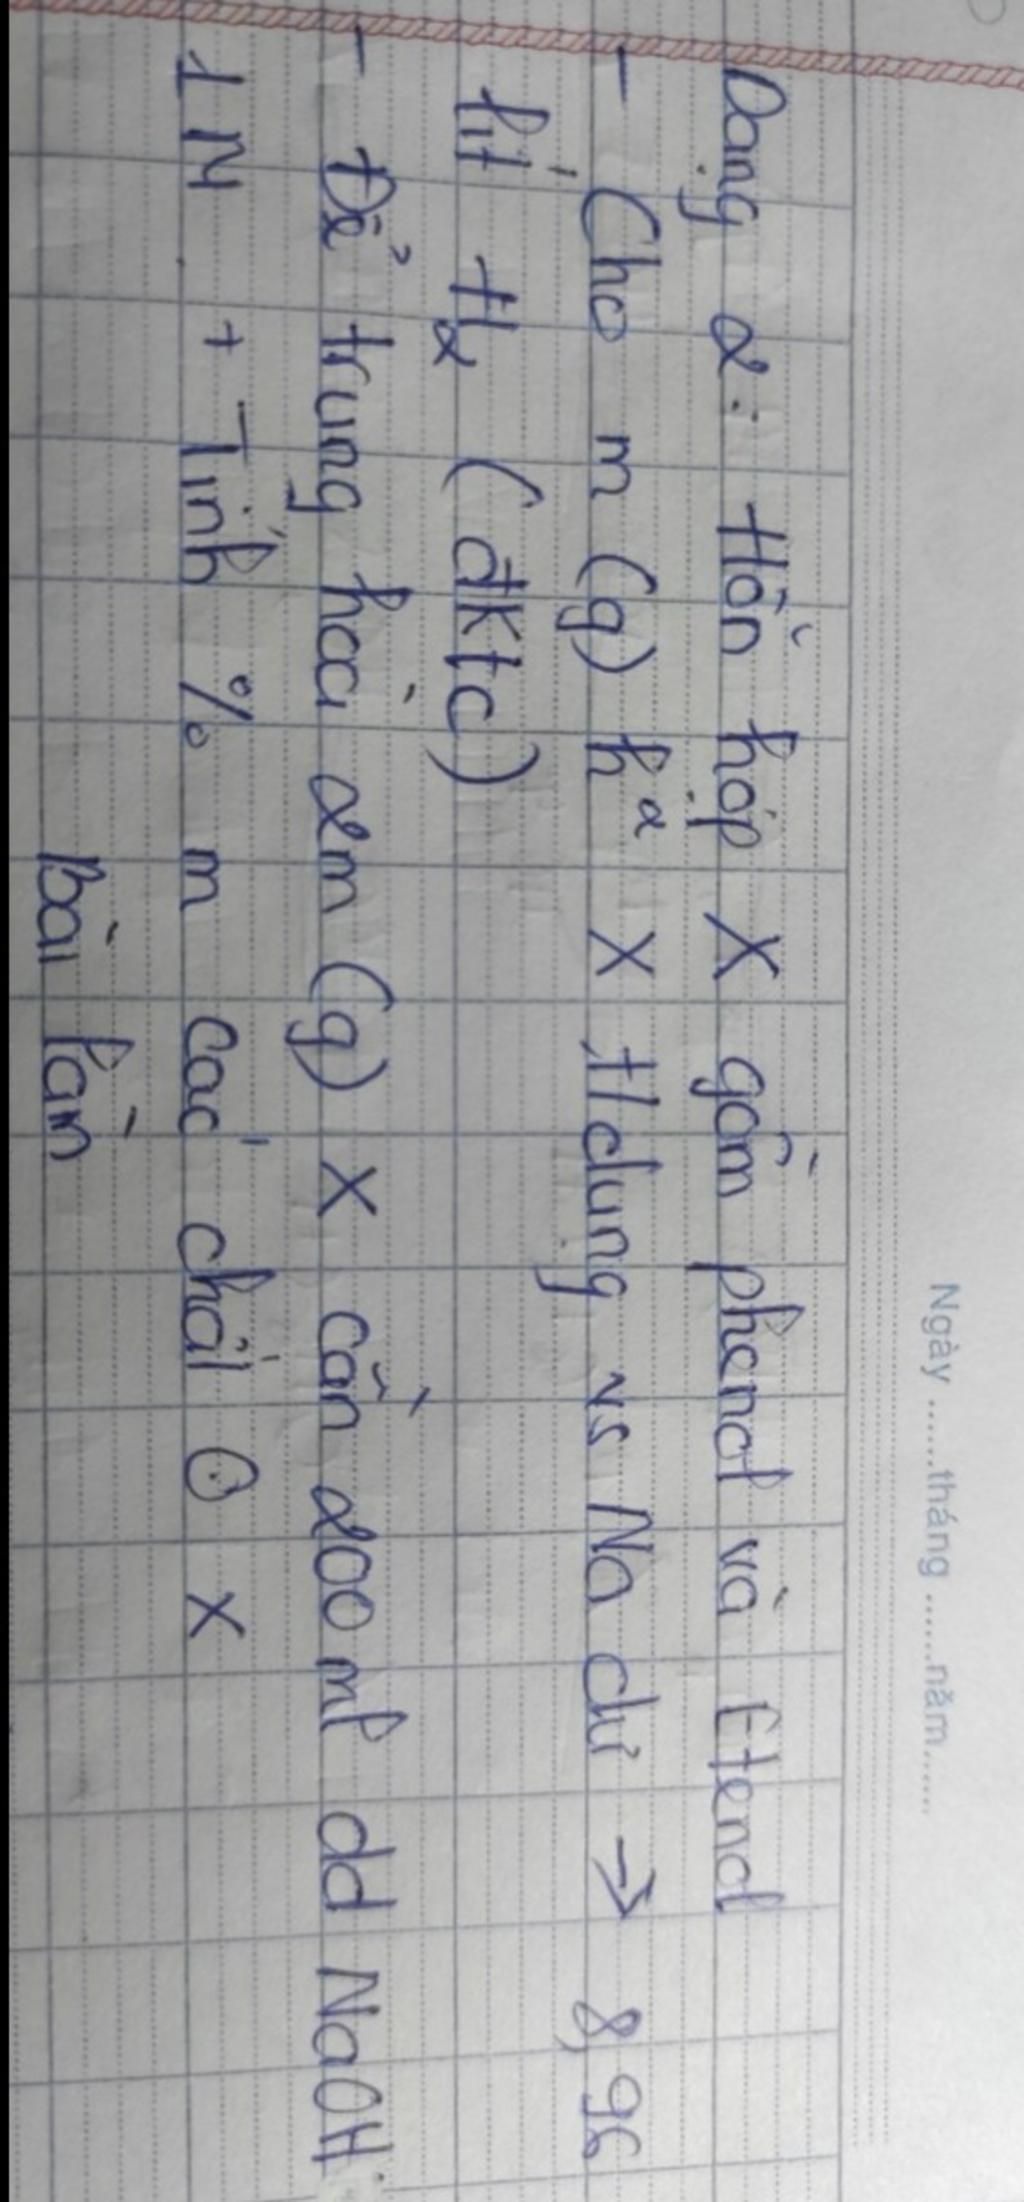 Ngày ......tháng ......năm......
Dạng 2: Hỗn hợp X gồm phenol và Etenol
- Cho m (g) h² X t/dụng vs Na dư → 8,96
lít H₂ (đktc)
- Để trung hoà 2m (g) X cần 200 ml dd NaOH
1M + Tính % m các chất ⊙ X
Bài làm